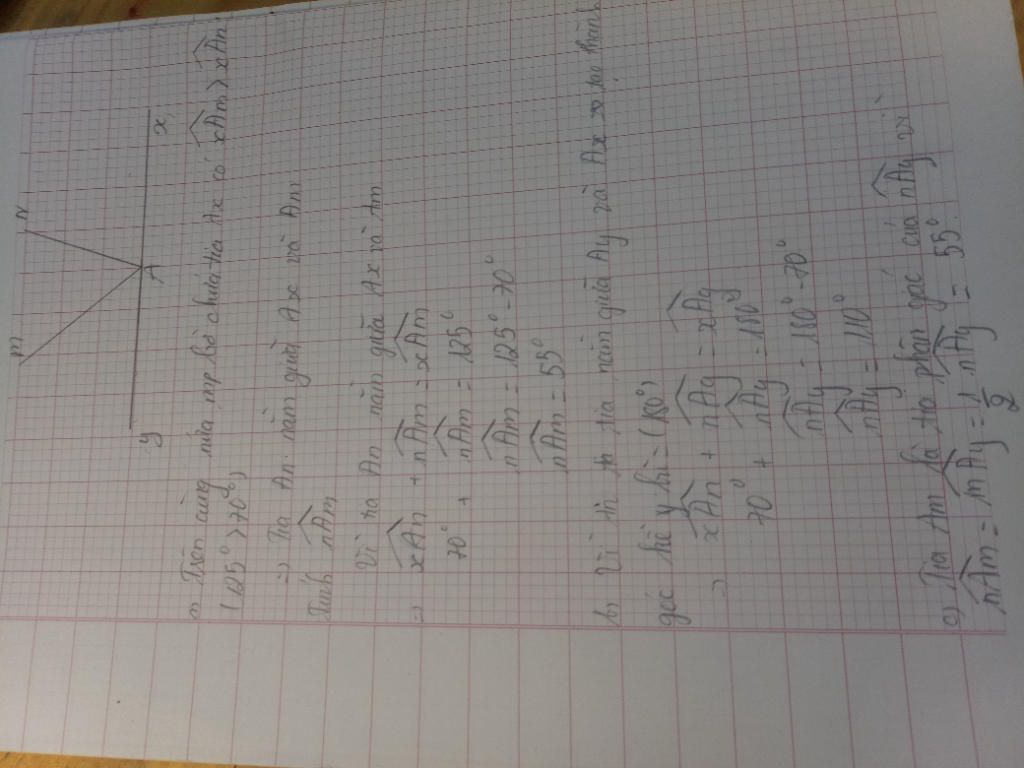 m N
y A x
a, Trên cùng nửa mp bờ chứa tia Ax có xÂm > xÂn
(125° > 70°)
=> Tia An nằm giữa Ax và Am
Tính nÂm
Vì tia An nằm giữa Ax và Am
=> xÂn + nÂm = xÂm
70° + nÂm = 125°
nÂm = 125° - 70°
nÂm = 55°
b, Vì tia nằm giữa Ay và Ax tạo thành
góc kề bù = (180°)
=> xÂn + nÂy = xÂy
70° + nÂy = 180°
nÂy = 180° - 70°
nÂy = 110°
c) Tia Am là tia phân giác của nÂy vì:
nÂm = mÂy = 1/2 nÂy = 55°